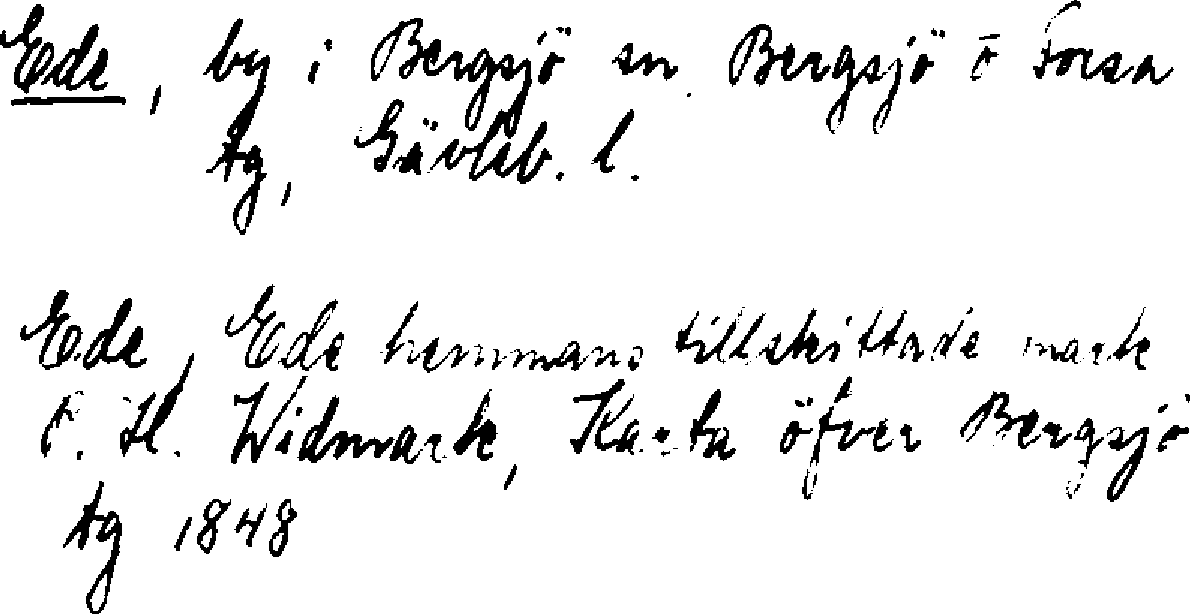 Ede, by i Bergsjö sn. Bergsjö o Forsa
tg, Gävleb. l.
Ede, Ede hemmans tillskiftade mark
P. H. Widmark, Karta öfver Bergsjö
tg 1848